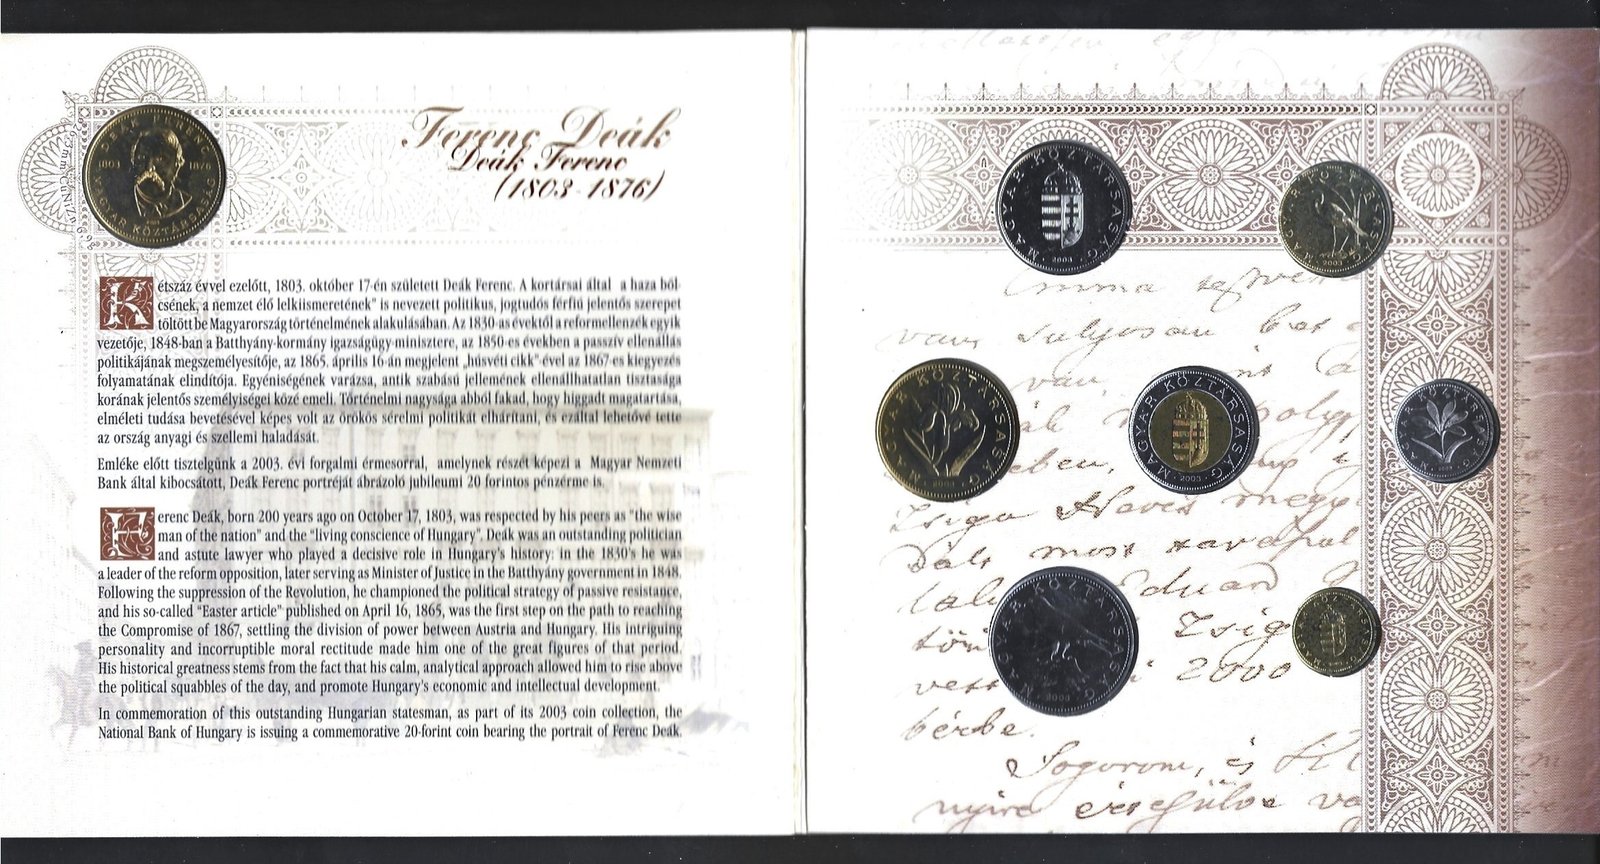 DEÁK FERENC
1803 1876
MAGYAR KÖZTÁRSASÁG
Ferenc Deák
Deák Ferenc
(1803-1876)
Kétszáz évvel ezelőtt, 1803. október 17-én született Deák Ferenc. A kortársai által a haza böl-
csének, a nemzet élő lelkiismeretének" is nevezett politikus, jogtudós férfiú jelentős szerepet
töltött be Magyarország történelmének alakulásában. Az 1830-as évektől a reformellenzék egyik
vezetője, 1848-ban a Batthyány-kormány igazságügy-minisztere, az 1850-es években a passzív ellenállás
politikájának megszemélyesítője, az 1865. április 16-án megjelent „húsvéti cikk"-ével az 1867-es kiegyezés
folyamatának elindítója. Egyéniségének varázsa, antik szabású jellemének ellenállhatatlan tisztasága
korának jelentős személyiségei közé emeli. Történelmi nagysága abból fakad, hogy higgadt magatartása,
elméleti tudása bevetésével képes volt az örökös sérelmi politikát elhárítani, és ezáltal lehetővé tette
az ország anyagi és szellemi haladását.
Emléke előtt tisztelgünk a 2003. évi forgalmi érmesorral, amelynek részét képezi a Magyar Nemzeti
Bank által kibocsátott, Deák Ferenc portréját ábrázoló jubileumi 20 forintos pénzérme is.
Ferenc Deák, born 200 years ago on October 17, 1803, was respected by his peers as "the wise
man of the nation" and the "living conscience of Hungary". Deák was an outstanding politician
and astute lawyer who played a decisive role in Hungary's history: in the 1830's he was
a leader of the reform opposition, later serving as Minister of Justice in the Batthyány government in 1848.
Following the suppression of the Revolution, he championed the political strategy of passive resistance,
and his so-called "Easter article" published on April 16, 1865, was the first step on the path to reaching
the Compromise of 1867, settling the division of power between Austria and Hungary. His intriguing
personality and incorruptible moral rectitude made him one of the great figures of that period.
His historical greatness stems from the fact that his calm, analytical approach allowed him to rise above
the political squabbles of the day, and promote Hungary's economic and intellectual development.
In commemoration of this outstanding Hungarian statesman, as part of its 2003 coin collection, the
National Bank of Hungary is issuing a commemorative 20-forint coin bearing the portrait of Ferenc Deák.
MAGYAR KÖZTÁRSASÁG
2003
MAGYAR KÖZTÁRSASÁG
2003
MAGYAR KÖZTÁRSASÁG
2003
MAGYAR KÖZTÁRSASÁG
2003
MAGYAR KÖZTÁRSASÁG
2003
MAGYAR KÖZTÁRSASÁG
2003
MAGYAR KÖZTÁRSASÁG
van sulyosan
van
most
2000
bérbe.
Sogorom, és